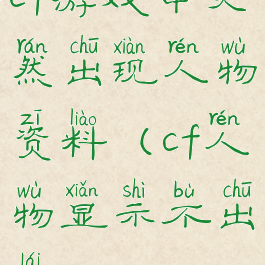 rán chū xiàn rén wù
然出现人物
zī liào rén
资料(cf人
wù xiǎn shì bù chū
物显示不出
lái